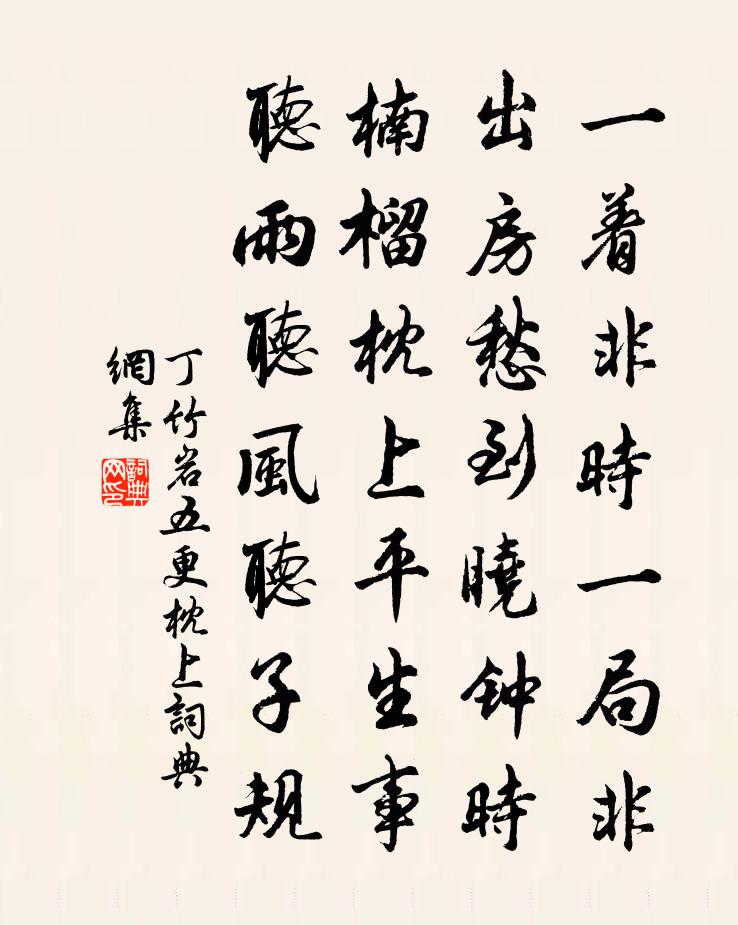 一着非時一局非
出房愁到曉钟時
楠榴枕上平生事
聽雨聽風聽子規
丁竹岩五更枕上詞典
網集
詞典
网印